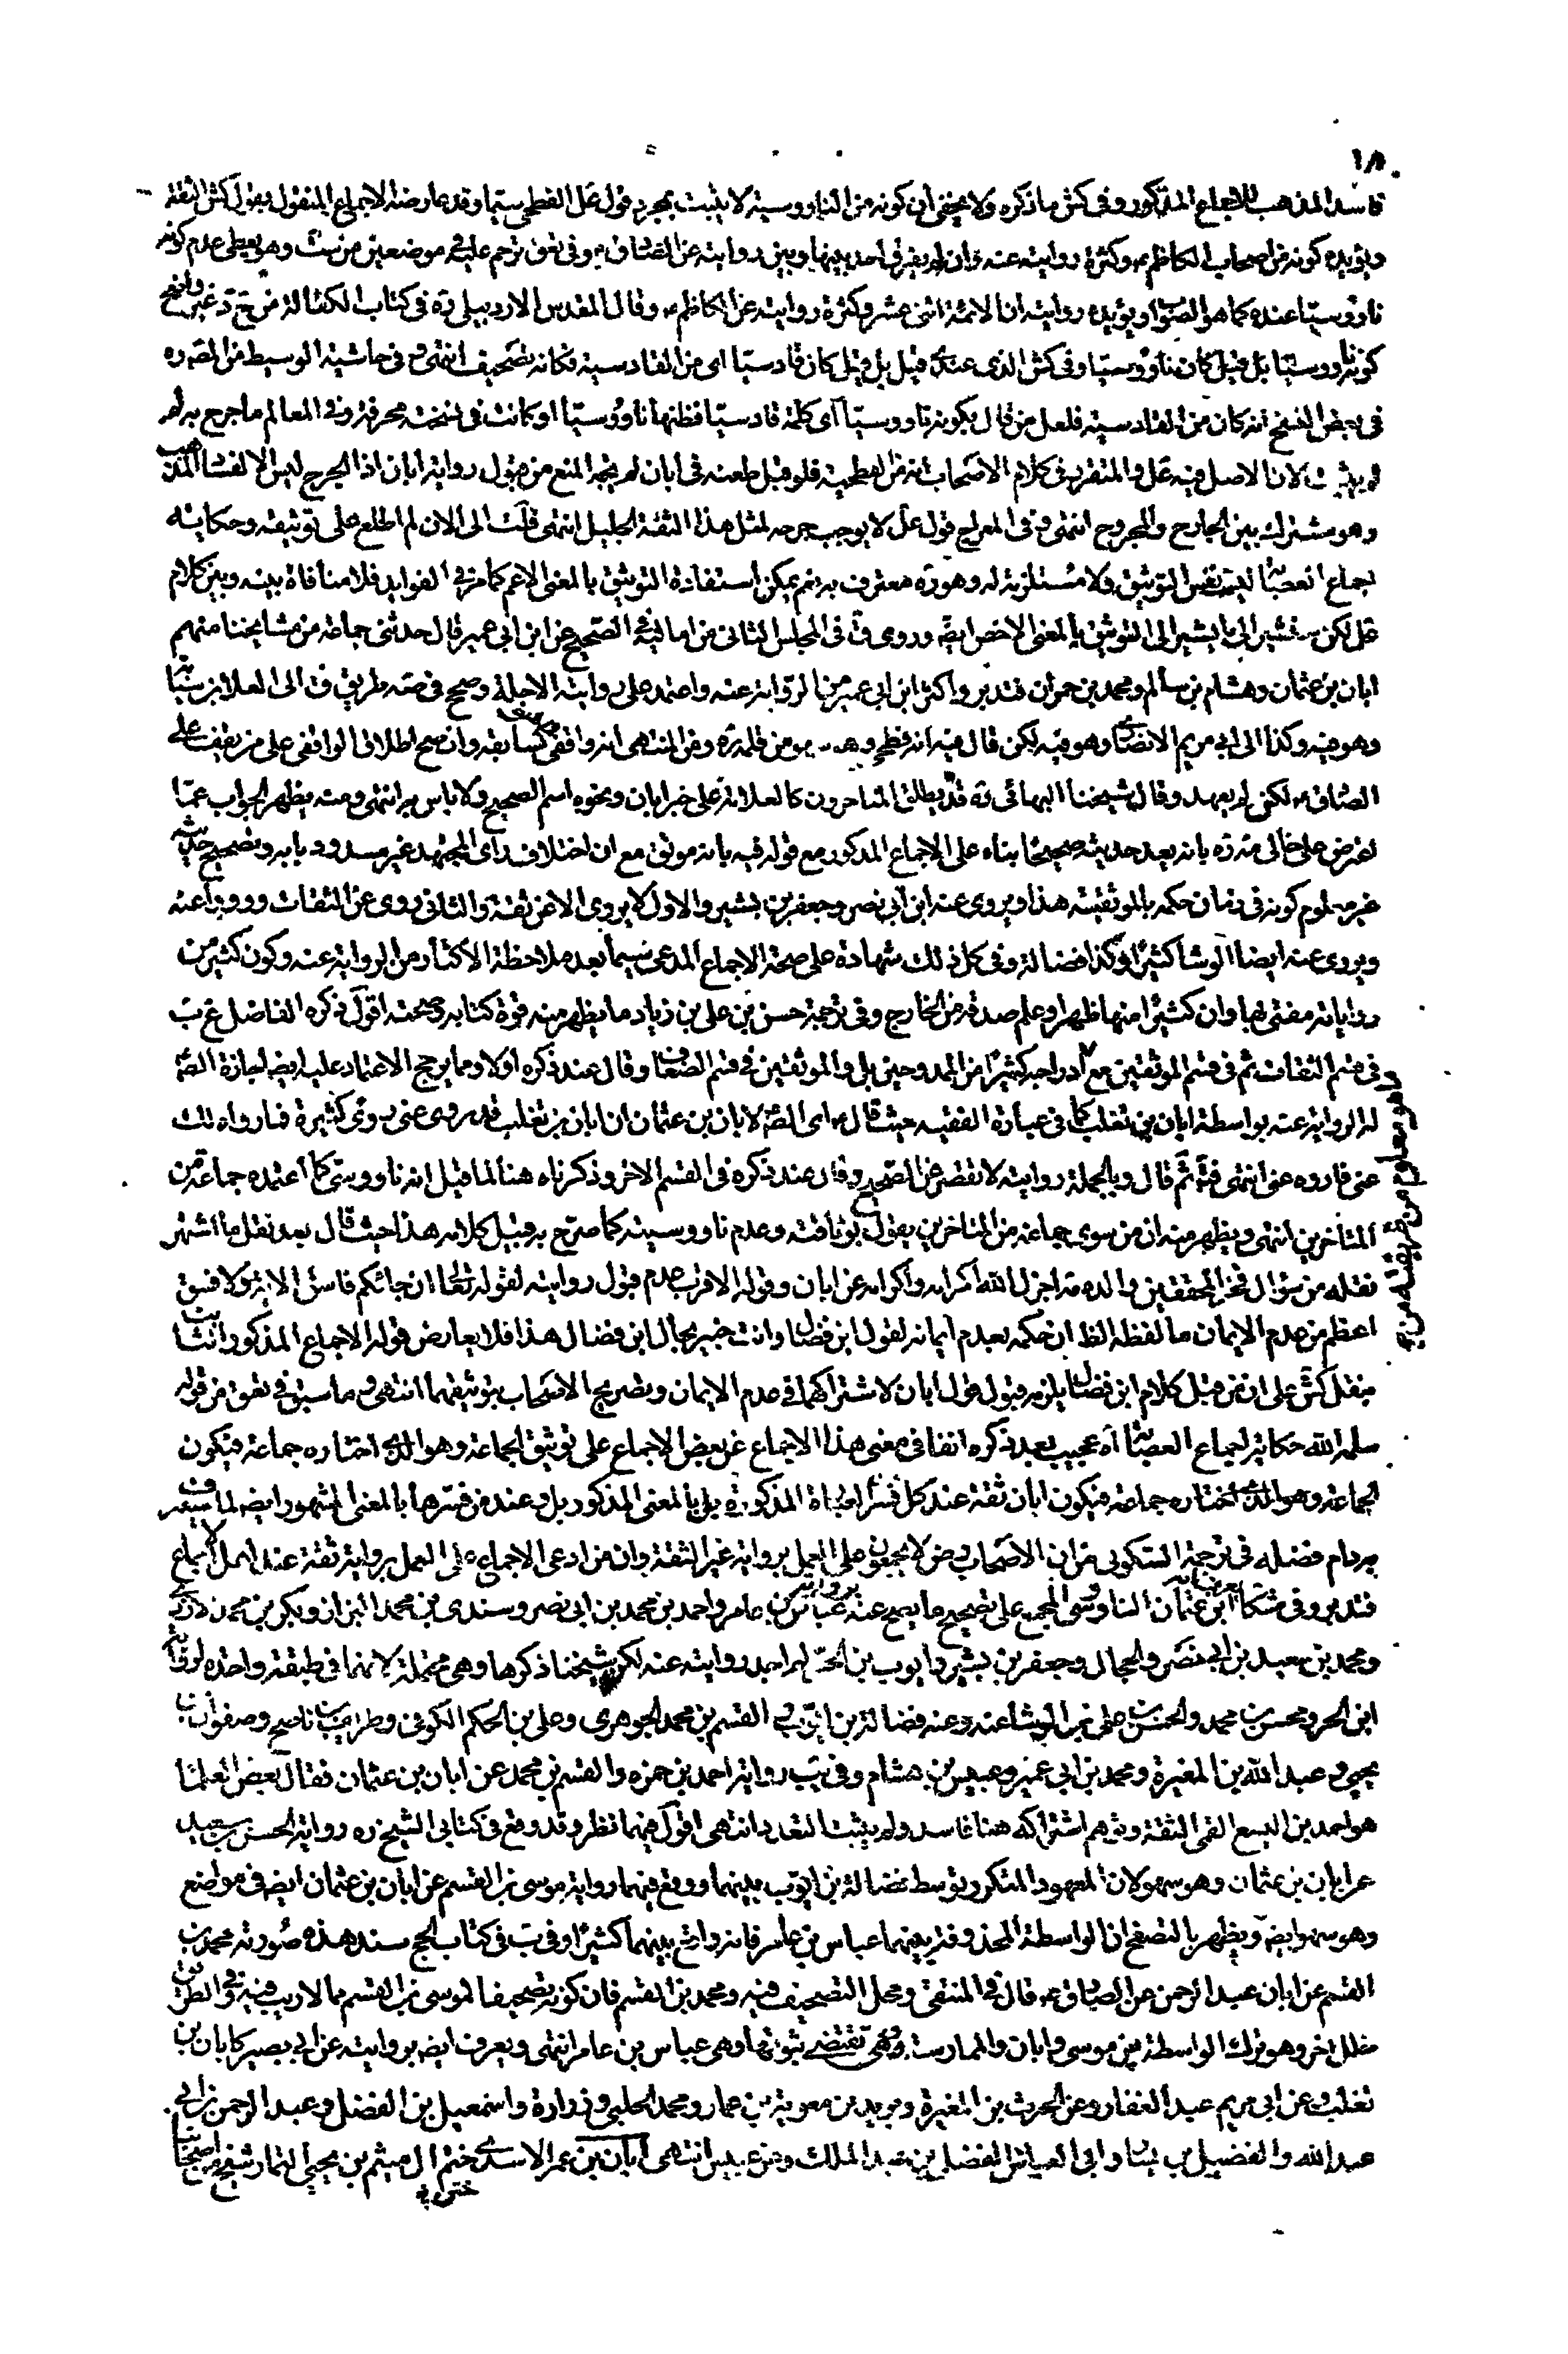 ١٨
فاسد المذهب للاجماع المذكور وفى كش ما ذكره ولا يخفى ان كونه من الناووسية لا يثبت بمجرد قول عل الفطحى سيما وقد عارضه الاجماع المنقول بقول كش الثقة
ويؤيده كونه من اصحاب الكاظم ع وكثرة روايته عنه وفى تعق ترحم عليه فى موضعين من ست وهو يعطى عدم كونه
ناووسيا عنده كما هو الصواب ويؤيده روايته ان الائمة اثنى عشر وكثرة روايته عن الكاظم ع وقال المقدس الاردبيلى ره فى كتاب الكفالة من شرح د غير واضح
كونه ناووسيا بل قيل كان ناووسيا وفى كش الذى عندى قيل كان قادسيا اى من القادسية فكانه تصحيف انتهى وفى حاشية الوسيط من المص ره
فى بعض النسخ انه كان من القادسية فلعل من قال بكونه ناووسيا رأى كلمة قادسيا فظنها ناووسيا او كانت فى نسخته محرفة وفى المعالم ما جرح به لم
يثبت لان الاصل فيه عل والمتقرر فى كلام الاصحاب انه من الفطحية فلو قبل طعنه فى ابان لم يتجه المنع من قبول رواية ابان اذ الجرح ليس الا لفساد المذهب
وهو مشترك بين الجارح والمجروح انتهى وفى المعراج قول عل لا يوجب جرحه لمثل هذا الثقة الجليل انتهى قلت الى الان لم اطلع على توثيقه وحكاية
اجماع العصابة ليست نفس التوثيق ولا مستلزمة له وهو ره معترف به نعم يمكن استفادة التوثيق بالمعنى الاعم كما مر فى الفوايد فلا منافاة بينه وبين كلام
عل لكن سنشير الى ما يشير الى التوثيق بالمعنى الاخص ايضا وروى ق فى المجلس الثانى من اماليه فى الصحيح عن ابن ابى عمير قال حدثنى جماعة من مشايخنا منهم
ابان بن عثمان وهشام بن سالم ومحمد بن حمران فتدبر واكثر ابن ابى عمير من الرواية عنه واعتمد على روايته الاجلة وصحح فى صه طريق ق الى العلا بن سيابة
وهو فيه وكذا الى ابى مريم الانصارى وهو فيه لكن قال فيه انه فطحى وهو سهو من قلمه ره وفى المنتهى انه واقفى وان صح اطلاق الواقفى على من يقف على
الصادق ع لكن لم يعهد وقال شيخنا البهائى ره قد يطلق المتاخرون كالعلامة على خبر ابان ونحوه اسم الصحيح ولا باس به انتهى ومنه يظهر الجواب عما
اعترض على خالى ره بانه يعد حديثه صحيحا بناء على الاجماع المذكور مع قوله فيه بانه موثق مع ان اختلاف راى المجتهد غير مسدود بابه وتصحيح حديثه
غير معلوم كونه فى زمان حكمه بالموثقية هذا ويروى عنه ابن ابى نصر وجعفر بن بشير والاول لا يروى الا عن ثقة والثانى روى عن الثقات ورووا عنه
ويروى عنه ايضا الوشا كثيرا وكذا فضالة وفى كل ذلك شهادة على صحة الاجماع المدعى سيما بعد ملاحظة الاكثار من الرواية عنه وكون كثير من
رواياته مفتى بها وان كثيرا منها ظهر وعلم صدقه من الخارج وفى ترجمة حسن بن على بن زياد ما يظهر منه قوة كتابه وصحته اقول ذكره الفاضل
فى قسم الثقات ثم فى قسم الموثقين مع ادراجه كثيرا من الممدوحين بل والموثقين فى قسم الضعاف وقال عند ذكره اولا ومما يرجح الاعتماد عليه ايضا اجازة الصادق
له الرواية عنه بواسطة ابان بن تغلب كما فى عبارة الفقيه حيث قال ع اى الصادق لابان بن عثمان ان ابان بن تغلب قد روى عنى رواية كثيرة فما رواه لك
عنى فاروه عنى انتهى ثم قال وبالجملة روايته لا تقصر عن الصحيح وقال عند ذكره فى القسم الاخر وذكرناه هنا لما قيل انه ناووسى كما اعتمده جماعة من
المتاخرين انتهى ويظهر منه ان من سوى جماعة من المتاخرين يقول بوثاقته وعدم ناووسيته كما صرح به قبيل كلامه هذا حيث قال بعد نقل ما اشتهر
نقله من سؤال فخر المحققين والده اجزل الله اكرامه عن ابان وقوله الاقرب عدم قبول روايته لقوله تعالى ان جائكم فاسق الاية ولا فسق
اعظم من عدم الايمان ما لفظه الظ ان حكمه بعدم ايمانه لقول ابن فضال وانت خبير بحال ابن فضال هذا فلا يعارض قوله الاجماع المذكور الثابت
بنقل كش على ان من قبل كلام ابن فضال يلزمه قبول قول ابان لاشتراكهما فى عدم الايمان وتصريح الاصحاب بتوثيقهما انتهى وما سبق فى تعق من قوله
سلمه الله حكاية اجماع العصابة اه عجيب بعد ذكره انفا فى معنى هذا الاجماع عن بعض الاجماع على توثيق الجماعة وهو الذى اختاره جماعة فيكون
الجماعة وهو الذى اختاره جماعة فيكون ابان ثقة عند كل من فسر العبارة المذكورة بل بالمعنى المذكور بل وعند من فسرها بالمعنى المشهور ايضا لما سيعترف
به دام فضله فى ترجمة السكونى من ان الاصحاب رض لا يجمعون على العمل برواية غير الثقة وان من ادعى الاجماع على العمل بروايته ثقة عند اهل الاجماع
فتدبر وفى مشكا ابن عثمان الناووسى المجمع على تصحيح ما يصح عنه عباس بن عامر واحمد بن محمد بن ابى نصر وسندى بن محمد البزاز وبكر بن محمد الازدى
ومحمد بن سعيد بن ابى نصر والحجال وجعفر بن بشير وايوب بن الحر لم اجد روايته عنه لكن شيخنا ذكرها وهى محتملة لانهما فى طبقة واحدة
ابن الحر ومحسن بن محمد والحسن بن على بن الوشا عنه وعنه فضالة بن ايوب والقسم بن محمد الجوهرى وعلى بن الحكم الكوفى وظريف بن ناصح وصفوان بن
يحيى وعبد الله بن المغيرة ومحمد بن ابى عمير وعبيس بن هشام وفى يب رواية احمد بن حمزه والقسم بن محمد عن ابان بن عثمان فقال بعض
هو احمد بن اليسع القمى الثقة وتوهم اشتراكه هنا فاسد ولم يثبت التعدد انتهى اقول فيهما نظر وقد وقع فى كتابى الشيخ ره رواية الحسين بن سعيد
عن ابان بن عثمان وهو سهو لان المعهود المتكرر توسط فضالة بن ايوب بينهما ووقع فيهما رواية موسى بن القسم عن ابان بن عثمان ايضا فى مواضع
وهو سهو ايضا ويظهر بالتصفح ان الواسطة المحذوفة بينهما عباس بن عامر فانه واقع بينهما كثيرا وفى يب فى كتاب الحج سند هذه صورته محمد بن
القسم عن ابان عبد الرحمن عن الصادق ع قال فى المنتقى ومحل التصحيف فيه ومحمد بن القسم فان كونه تصحيفا لموسى بن القسم مما لا ريب فيه وفى الطريق
خلل اخر وهو ترك الواسطة بين موسى وابان والممارسة تقتضى ثبوتها وهى عباس بن عامر انتهى ويعرف ايضا بروايته عن ابى بصير كابان بن
تغلب وعن ابى مريم عبد الغفار وعن الحرث بن المغيرة وبريد بن معوية بن عمار ومحمد الحلبى وزرارة واسمعيل بن الفضل وعبد الرحمن بن ابى
عبد الله والفضيل بن يسار وابى العباس الفضل بن عبد الملك وعن عبيس انتهى ابان بن عمر الاسدى ختن ال ميثم بن يحيى التمار شيخ من اصحابنا